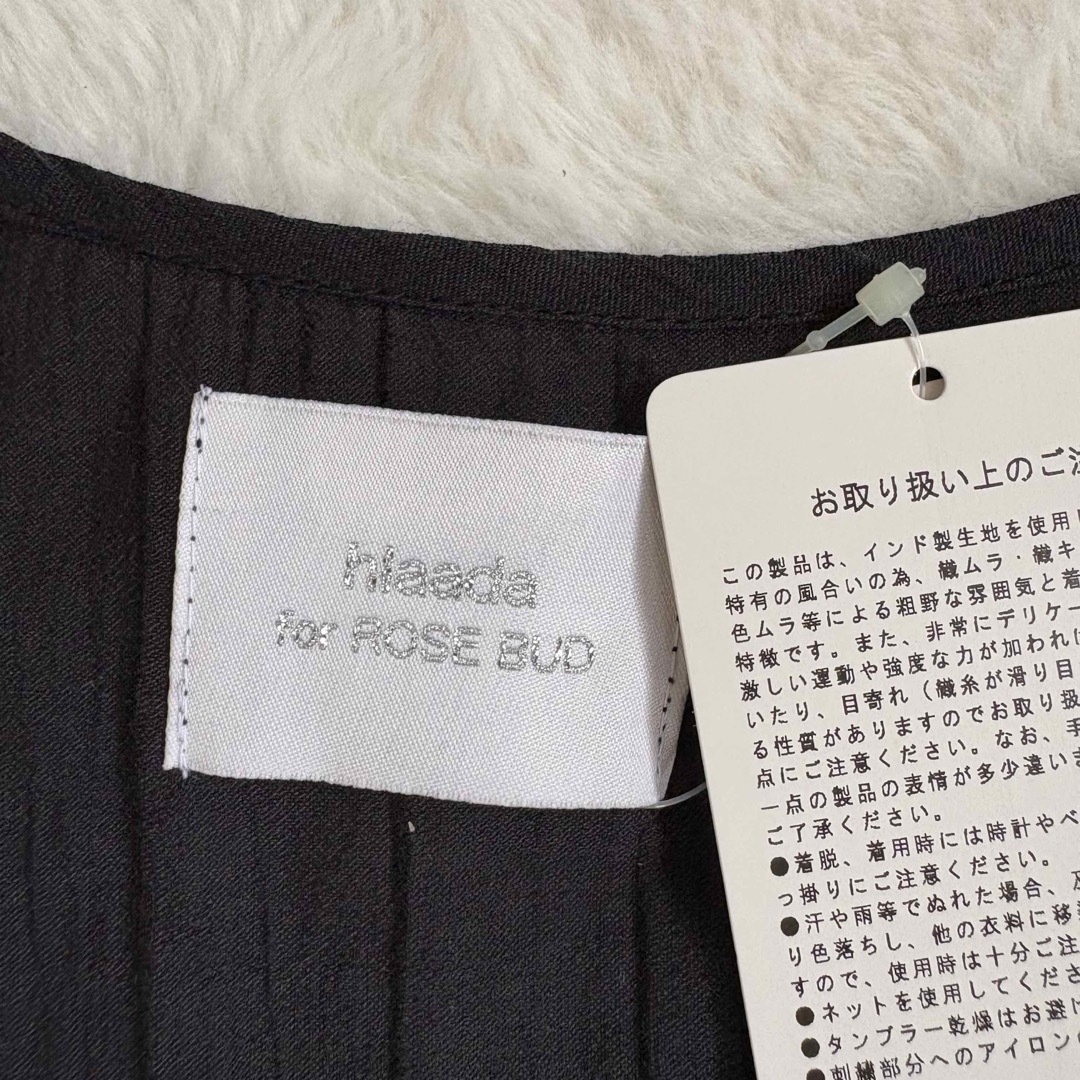 hlaada
for ROSE BUD
お取り扱い上のご注
この製品は、インド製生地を使用し
特有の風合いの為、織ムラ・織キ
色ムラ等による粗野な雰囲気と着
特徴です。また、非常にデリケー
激しい運動や強度な力が加われば
いたり、目寄れ(織糸が滑り目
る性質がありますのでお取り扱
点にご注意ください。なお、手
一点の製品の表情が多少違いま
ご了承ください。
●着脱、着用時には時計やベ
っ掛りにご注意ください。
●汗や雨等でぬれた場合、及
り色落ちし、他の衣料に移染
すので、使用時は十分ご注
●ネットを使用してくださ
●タンブラー乾燥はお避け
●刺繍部分へのアイロン